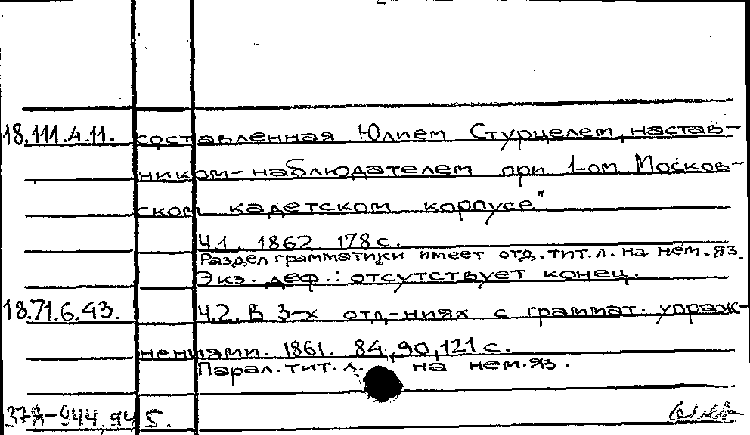 18.111.4.11. составленная Юлием Стурцелем, настав-
ником-наблюдателем при 1-ом Москов-
ском кадетском корпусе"
Ч.1. 1862 178 с.
Раздел грамматики имеет отд. тит. л. на нем. яз.
Экз. деф.: отсутствует конец.
18.71.6.43. Ч.2. В 3-х отд-ниях с граммат. упраж-
нениями. 1861. 84, 90, 121 с.
Парал. тит. л. на нем. яз.
37А-944,945.